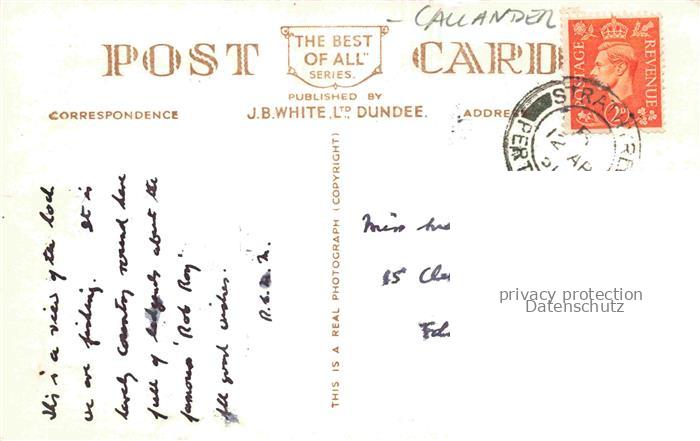 - CALLANDER
POST CARD
"THE BEST
OF ALL"
SERIES.
PUBLISHED BY
J.B. WHITE, LTD DUNDEE.
CORRESPONDENCE
ADDRESS
POSTAGE REVENUE
2D
STRATHYRE
PERT
12 AP
This is a view of the loch
we are fishing. It is
lovely country round here
full of legends about the
famous 'Rob Roy'
All good wishes.
THIS IS A REAL PHOTOGRAPH (COPYRIGHT)
Miss
85
privacy protection
Datenschutz